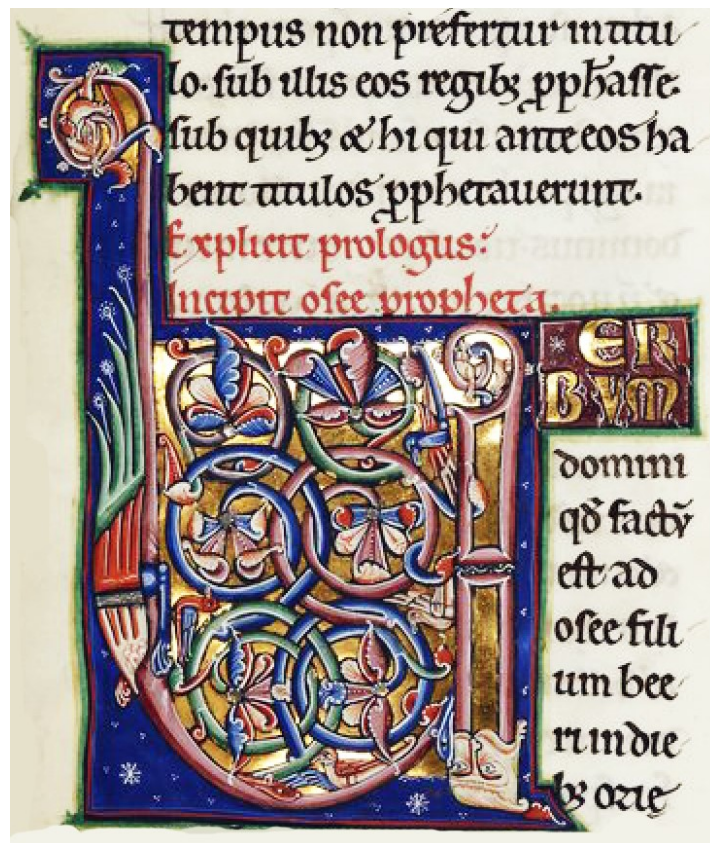 tempus non prefertur in titu
lo. sub illis eos regibꝫ ꝓph̄asse.
sub quibꝫ & hi qui ante eos ha
bent titulos ꝓphetauerunt.
Explicit prologus:
Incipit osee propheta.
V ER
BVM
domini
qđ factū
est ad
osee fili
um bee
ri in die
bꝫ ozię